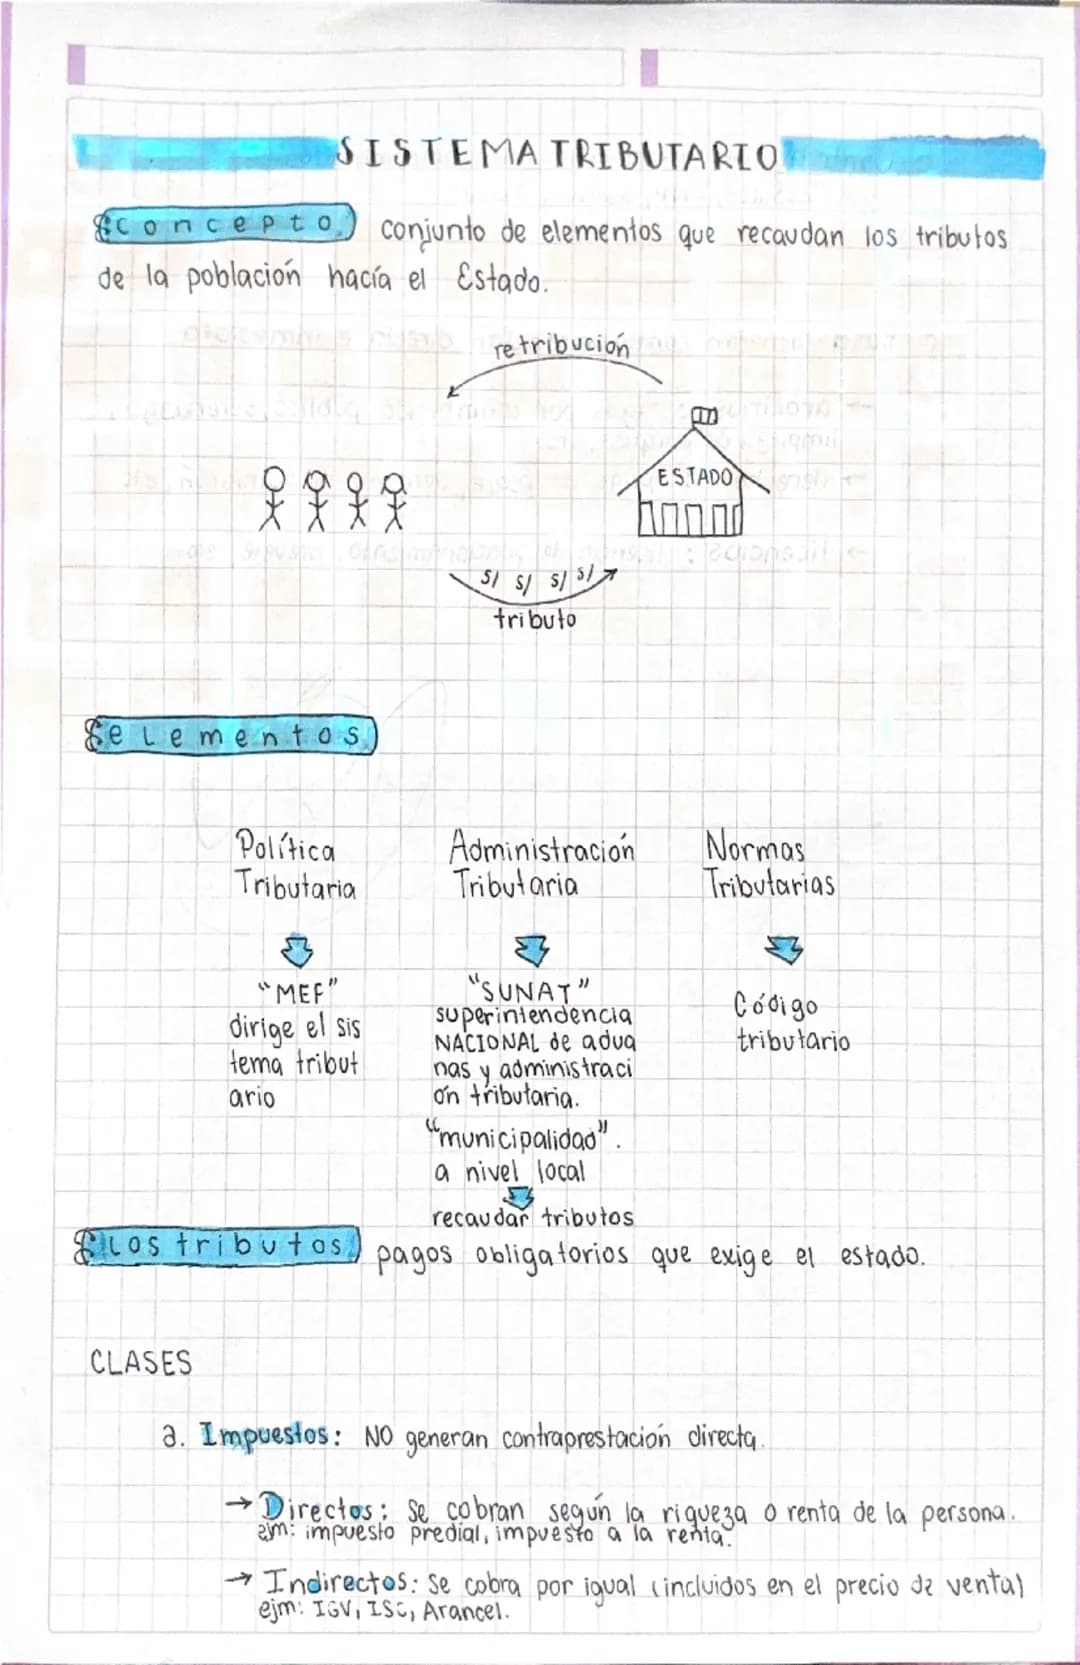 SISTEMA TRIBUTARIO
Concepto conjunto de elementos que recaudan los tributos
de la población hacía el Estado.
retribución
ESTADO
S/ S/ S/ S/
tributo
elementos
Política
Tributaria
"MEF"
dirige el sis
tema tribut
ario
Administración
Tributaria
"SUNAT"
superintendencia
NACIONAL de adua
nas y administraci
ón tributaria.
"municipalidad".
a nivel local
recaudar tributos
Normas
Tributarias
Código
tributario
Los tributos pagos obligatorios que exige el estado.
CLASES
a. Impuestos: NO generan contraprestación directa.
→ Directos: Se cobran según la riqueza o renta de la persona.
ejm: impuesto predial, impuesto a la renta.
→ Indirectos: Se cobra por igual (incluidos en el precio de venta)
ejm: IGV, ISC, Arancel.